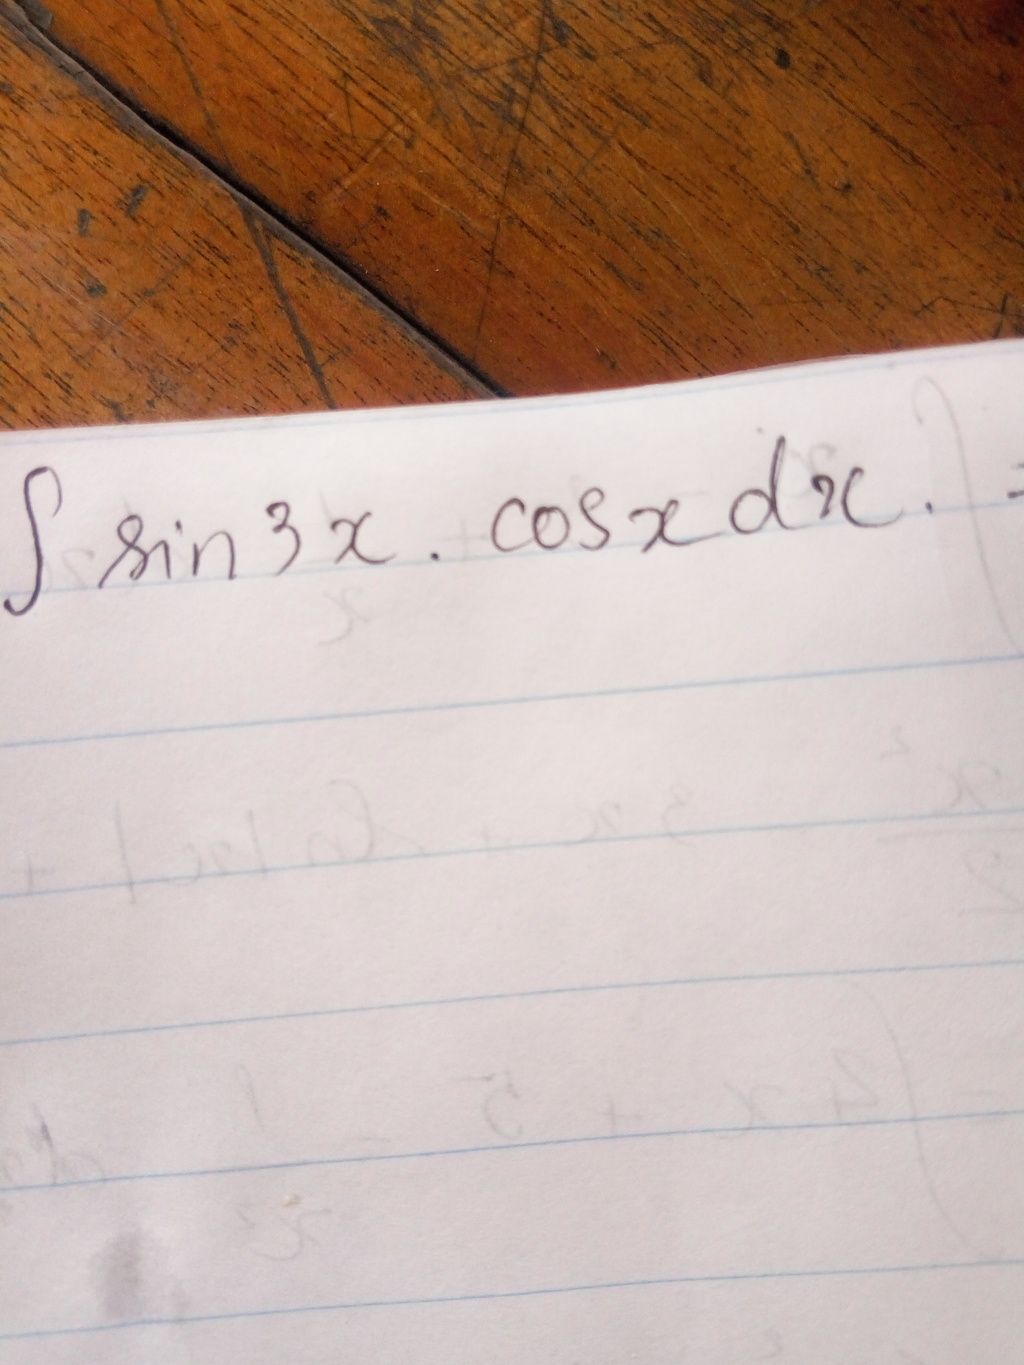 ∫ sin 3x . cos x dx .